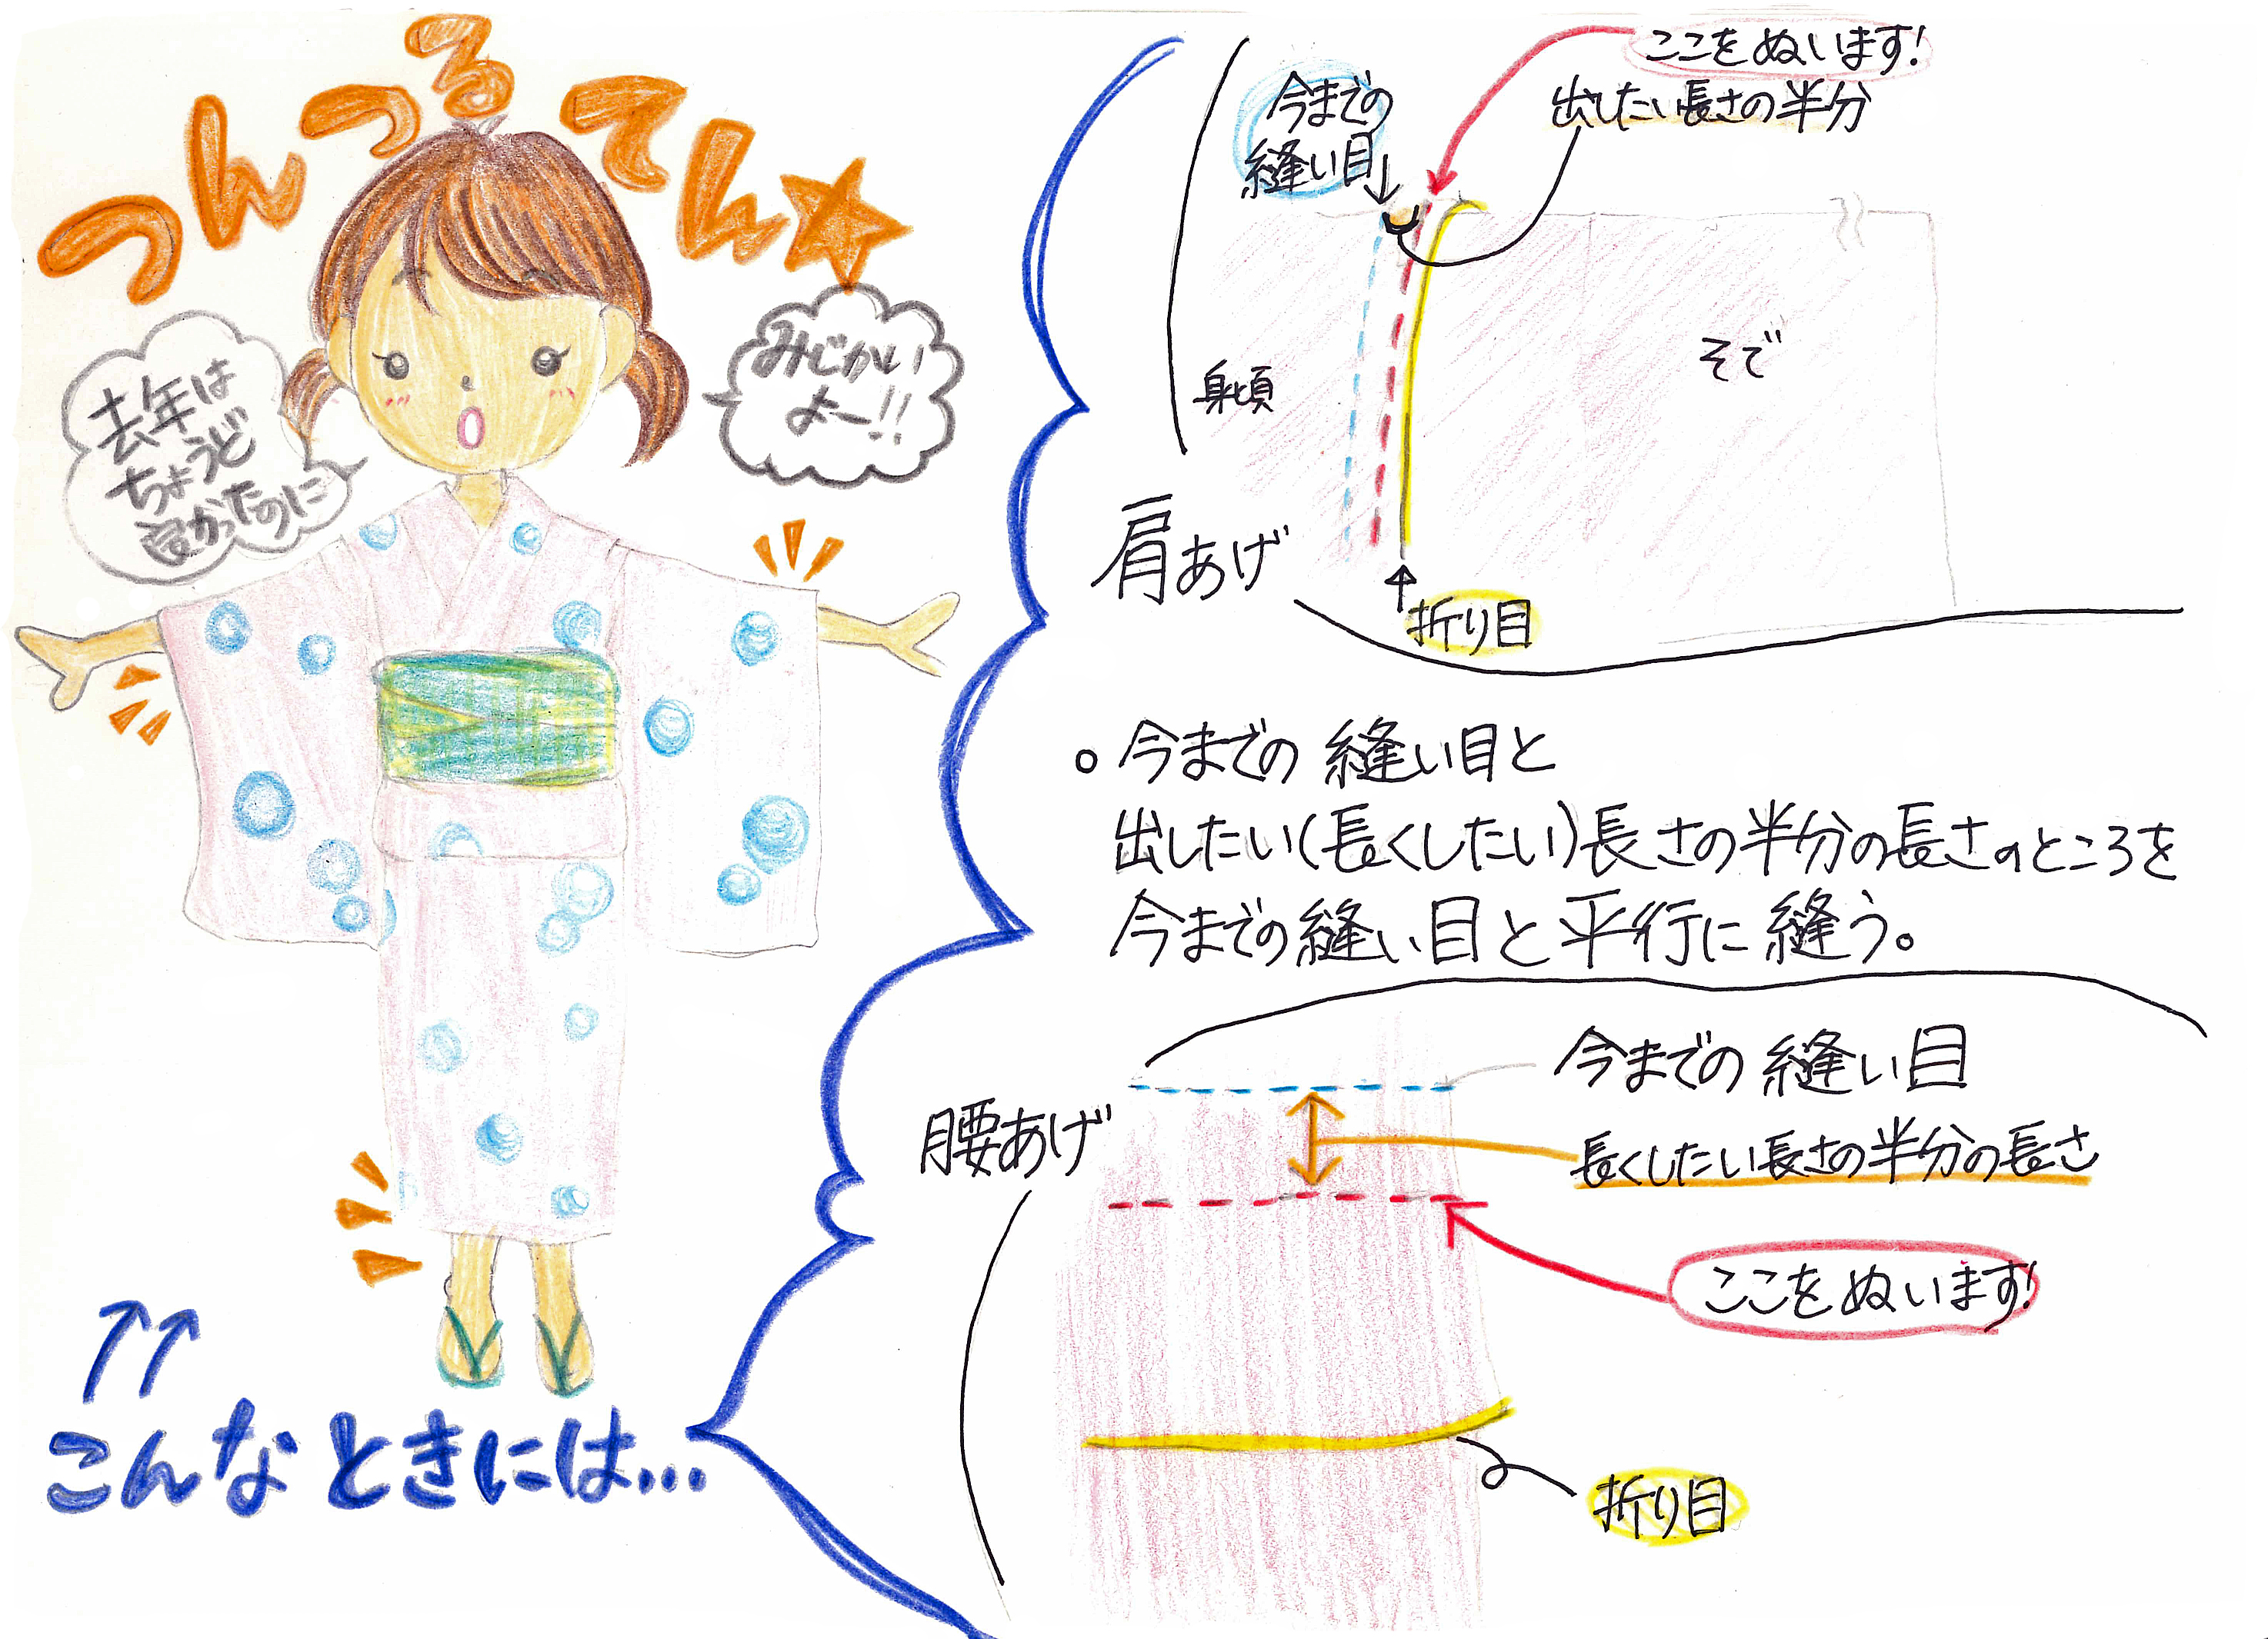 つんつるてん★
去年は
ちょうど
良かったのに
みじかい
よー!!
こんなときには...
ここをぬいます!
出したい長さの半分
今までの
縫い目
身頃
そで
肩あげ
折り目
。今までの縫い目と
出したい(長くしたい)長さの半分の長さのところを
今までの縫い目と平行に縫う。
今までの縫い目
腰あげ
長くしたい長さの半分の長さ
ここをぬいます!
折り目